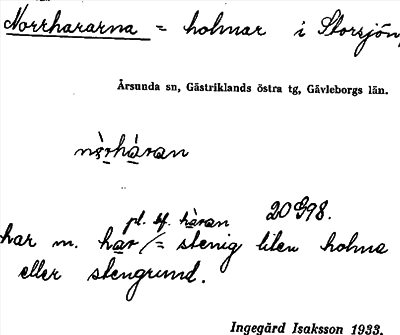 Norrhararna = holmar i Storsjön,
Årsunda sn, Gästriklands östra tg, Gävleborgs län.
nòrhàran
pl. bf. hàran 20598.
har m. har (= stenig liten holme
eller stengrund.
Ingegärd Isaksson 1933.